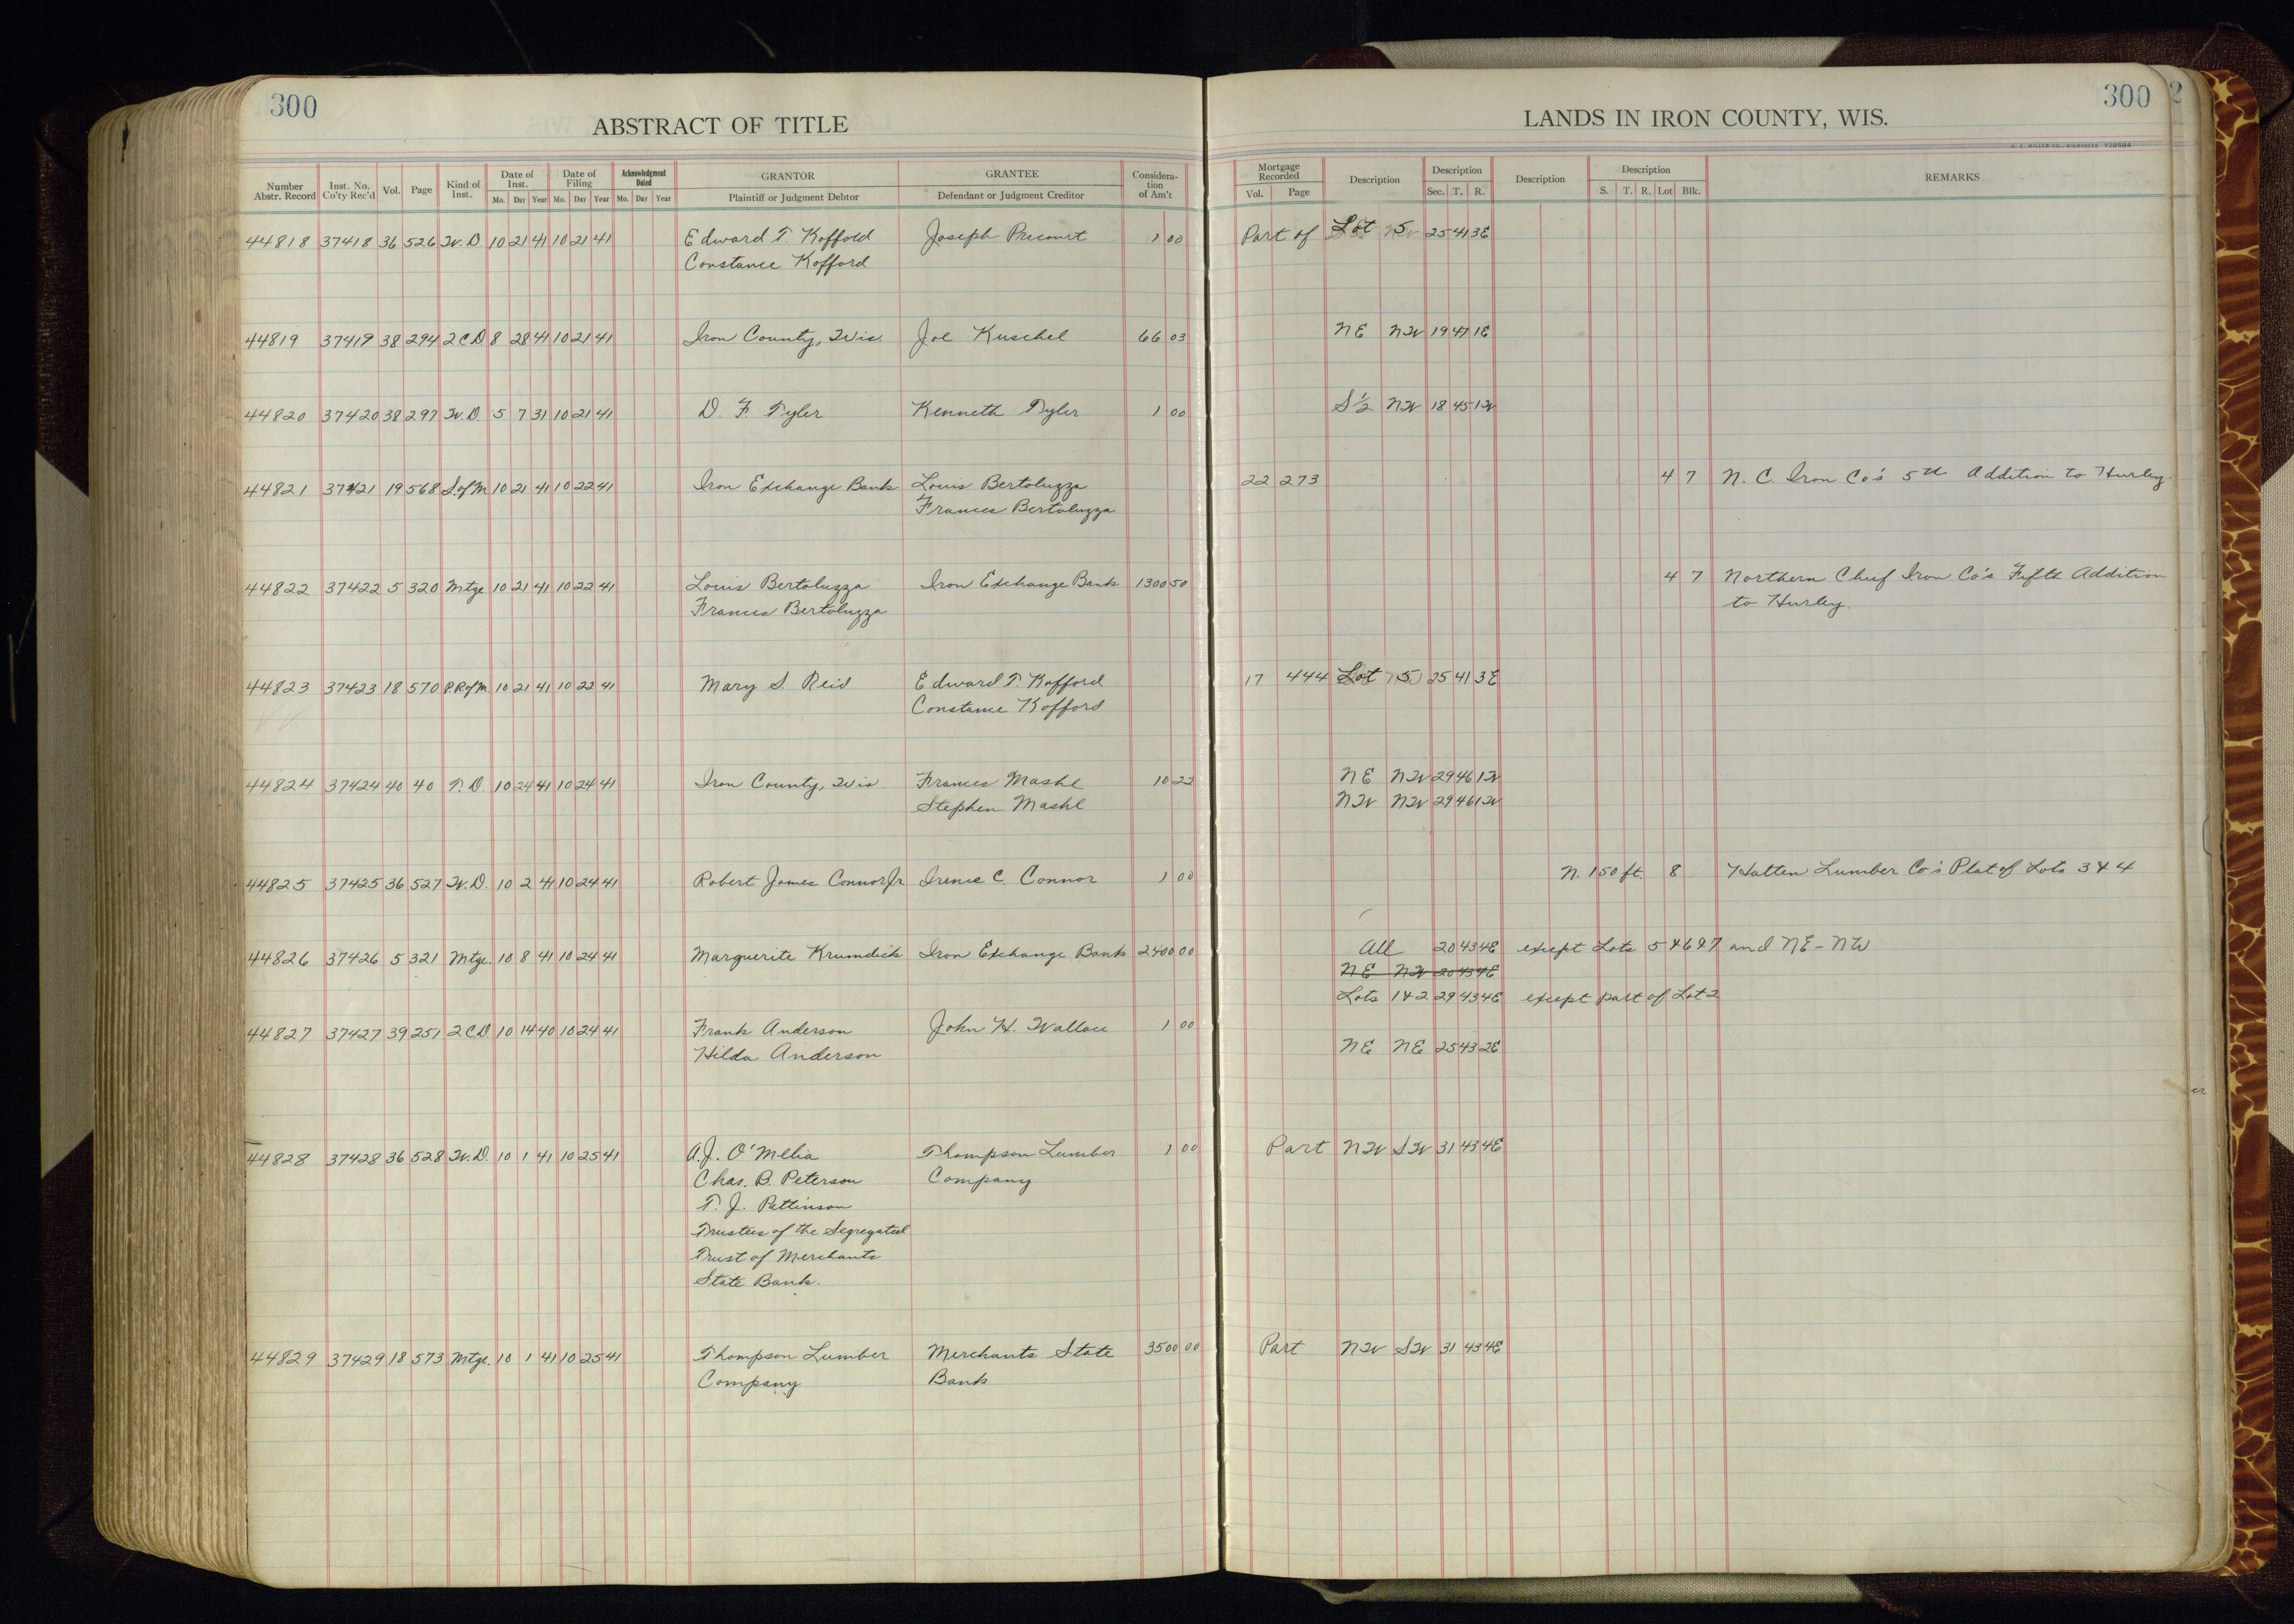 300
ABSTRACT OF TITLE
LANDS IN IRON COUNTY, WIS.
300
2
H. C. MILLER CO., MILWAUKEE
Number Abstr. Record | Inst. No. Co'ty Rec'd | Vol. | Page | Kind of Inst. | Date of Inst. Mo. Day Year | Date of Filing Mo. Day Year | Acknowledgment Dated Mo. Day Year | GRANTOR Plaintiff or Judgment Debtor | GRANTEE Defendant or Judgment Creditor | Consideration of Am't | Mortgage Recorded Vol. Page | Description | Description Sec. T. R. | Description | Description S. T. R. Lot Blk. | REMARKS
44818 37418 36 526 W.D. 10 21 41 10 21 41 Edward T. Kofford Joseph Precourt 1 00 Part of Lot 5 25 41 3E
Constance Kofford
44819 37419 38 294 2CD 8 28 41 10 21 41 Iron County, Wis. Joe Kuschel 66 03 NE NW 19 47 1E
44820 37420 38 297 W.D. 5 7 31 10 21 41 D. F. Tyler Kenneth Tyler 1 00 S½ NW 18 45 1W
44821 37421 19 568 S.ofM 10 21 41 10 22 41 Iron Exchange Bank Louis Bertoluzza 22 273 4 7 N. C. Iron Co's 5th Addition to Hurley.
Frances Bertoluzza
44822 37422 5 320 Mtge 10 21 41 10 22 41 Louis Bertoluzza Iron Exchange Bank 1300 50 4 7 Northern Chief Iron Co's Fifth Addition
Frances Bertoluzza to Hurley.
44823 37423 18 570 P.RofM 10 21 41 10 22 41 Mary S. Reid Edward T. Kofford 17 444 Lot 5 25 41 3E
Constance Kofford
44824 37424 40 40 T.D. 10 24 41 10 24 41 Iron County, Wis Frances Mashl 10 22 NE NW 29 46 1W
Stephen Mashl NW NW 29 46 1W
44825 37425 36 527 W.D. 10 2 41 10 24 41 Robert James Connor Jr Irene C. Connor 1 00 N. 150 ft. 8 Hatten Lumber Co's Plat of Lots 3 & 4
44826 37426 5 321 Mtge. 10 8 41 10 24 41 Marguerite Krumdick Iron Exchange Bank 2400 00 All 20 43 4E except Lots 5 & 6 & 7 and NE-NW
NE NW 20 43 4E
Lots 1 & 2 29 43 4E except part of Lot 2
44827 37427 39 251 2CD. 10 14 40 10 24 41 Frank Anderson John H. Wallace 1 00
Hilda Anderson NE NE 25 43 2E
44828 37428 36 528 W.D. 10 1 41 10 25 41 A.J. O'Melia Thompson Lumber 1 00 Part NW SW 31 43 4E
Chas. B. Peterson Company
T. J. Pattinson
Trustees of the Segregated
Trust of Merchants
State Bank.
44829 37429 18 573 Mtge. 10 1 41 10 25 41 Thompson Lumber Merchants State 3500 00 Part NW SW 31 43 4E
Company Bank